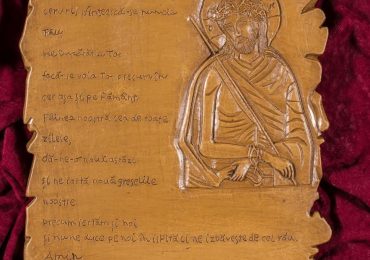 ceruri, sfințească-se numele
Tău
vie Împărăția Ta
facă-se voia Ta precum în
cer așa și pe Pământ
Pâinea noastră cea de toate
zilele,
dă-ne-o nouă astăzi
și ne iartă nouă greșelile
noastre
precum iertăm și noi
și nu ne duce pe noi în ispită și ne izbăvește de cel rău
Amin